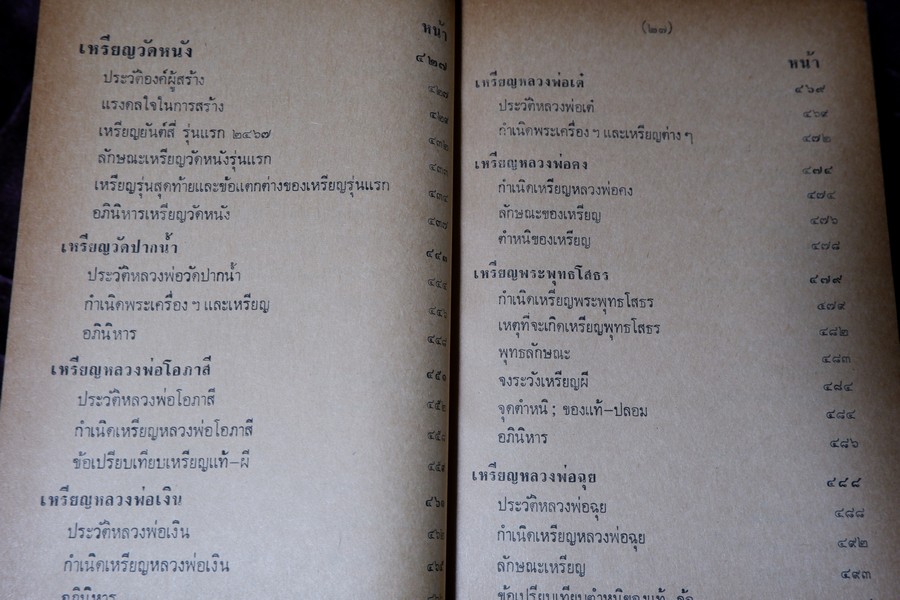 หน้า
เหรียญวัดหนัง ๔๒๗
ประวัติองค์ผู้สร้าง ๔๒๗
แรงดลใจในการสร้าง ๔๒๙
เหรียญยันต์สี่ รุ่นแรก ๒๔๖๗ ๔๓๒
ลักษณะเหรียญวัดหนังรุ่นแรก
เหรียญรุ่นสุดท้ายและข้อแตกต่างของเหรียญรุ่นแรก ๔๓๔
อภินิหารเหรียญวัดหนัง ๔๓๗
เหรียญวัดปากน้ำ
ประวัติหลวงพ่อวัดปากน้ำ ๔๔๔
กำเนิดพระเครื่อง ฯ และเหรียญ ๔๔๖
อภินิหาร ๔๔๘
เหรียญหลวงพ่อโอภาสี ๔๕๑
ประวัติหลวงพ่อโอภาสี ๔๕๒
กำเนิดเหรียญหลวงพ่อโอภาสี
ข้อเปรียบเทียบเหรียญแท้-ผี
เหรียญหลวงพ่อเงิน
ประวัติหลวงพ่อเงิน ๔๖๒
กำเนิดเหรียญหลวงพ่อเงิน
อภินิหาร
(๒๗)
หน้า
เหรียญหลวงพ่อเต๋ ๔๖๙
ประวัติหลวงพ่อเต๋ ๔๖๙
กำเนิดพระเครื่อง ฯ และเหรียญต่าง ๆ ๔๗๒
เหรียญหลวงพ่อคง ๔๗๔
กำเนิดเหรียญหลวงพ่อคง ๔๗๔
ลักษณะของเหรียญ ๔๗๖
ตำหนิของเหรียญ ๔๗๘
เหรียญพระพุทธโสธร ๔๗๙
กำเนิดเหรียญพระพุทธโสธร ๔๗๙
เหตุที่จะเกิดเหรียญพุทธโสธร ๔๘๒
พุทธลักษณะ ๔๘๓
จงระวังเหรียญผี ๔๘๔
จุดตำหนิ ; ของแท้-ปลอม ๔๘๔
อภินิหาร ๔๘๖
เหรียญหลวงพ่อฉุย ๔๘๘
ประวัติหลวงพ่อฉุย ๔๘๘
กำเนิดเหรียญหลวงพ่อฉุย ๔๙๒
ลักษณะเหรียญ ๔๙๓
ข้อเปรียบเทียบตำหนิของแท้